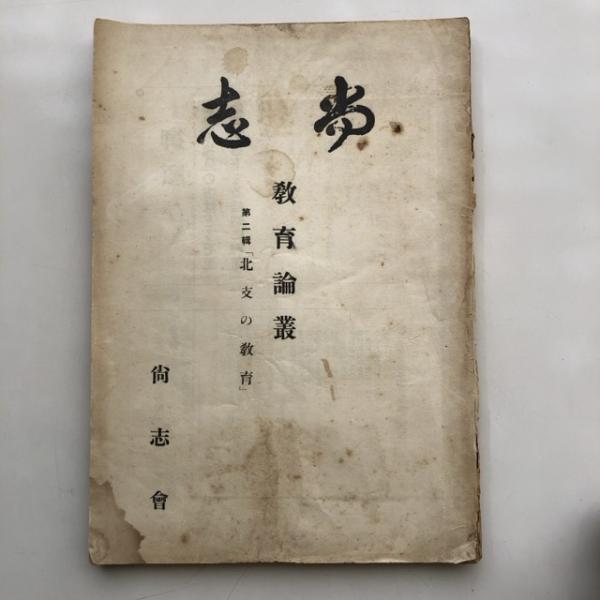 尚志
教育論叢
第二輯「北支の教育」
尙志會